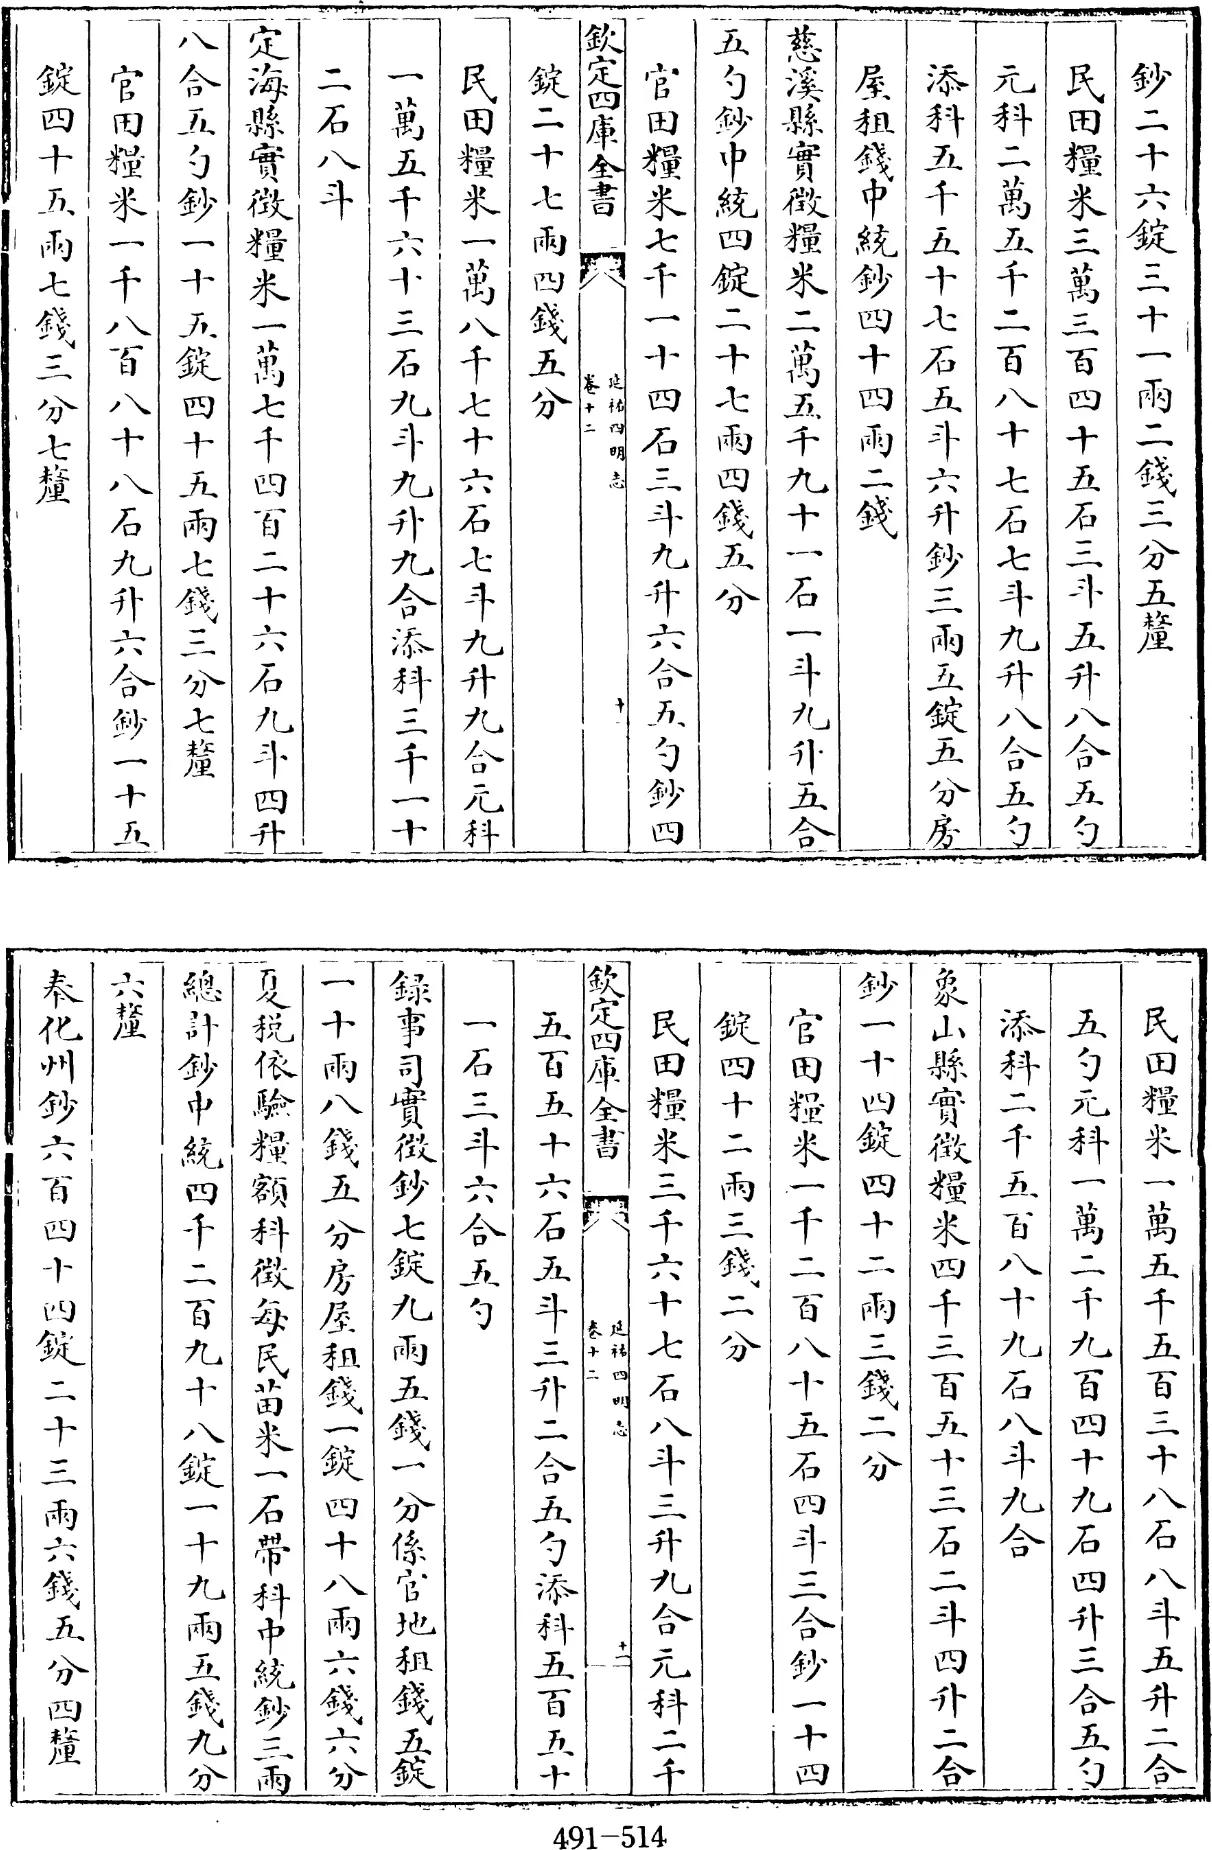 鈔二十六錠三十一兩二錢三分五釐
民田糧米三萬三百四十五石三斗五升八合五勺
元科二萬五千二百八十七石七斗九升八合五勺
添科五千五十七石五斗六升鈔三兩五錠五分房
屋租錢中統鈔四十四兩二錢
慈溪縣實徵糧米二萬五千九十一石一斗九升五合
五勺鈔中統四錠二十七兩四錢五分
官田糧米七千一十四石三斗九升六合五勺鈔四
欽定四庫全書
延祐四明志
卷十二
十
錠二十七兩四錢五分
民田糧米一萬八千七十六石七斗九升九合元科
一萬五千六十三石九斗九升九合添科三千一十
二石八斗
定海縣實徵糧米一萬七千四百二十六石九斗四升
八合五勺鈔一十五錠四十五兩七錢三分七釐
官田糧米一千八百八十八石九升六合鈔一十五
錠四十五兩七錢三分七釐
民田糧米一萬五千五百三十八石八斗五升二合
五勺元科一萬二千九百四十九石四升三合五勺
添科二千五百八十九石八斗九合
象山縣實徵糧米四千三百五十三石二斗四升二合
鈔一十四錠四十二兩三錢二分
官田糧米一千二百八十五石四斗三合鈔一十四
錠四十二兩三錢二分
民田糧米三千六十七石八斗三升九合元科二千
欽定四庫全書
延祐四明志
卷十二
十一
五百五十六石五斗三升二合五勺添科五百五十
一石三斗六合五勺
錄事司實徵鈔七錠九兩五錢一分係官地租錢五錠
一十兩八錢五分房屋租錢一錠四十八兩六錢六分
夏税依驗糧額科徵每民苗米一石帶科中統鈔三兩
總計鈔中統四千二百九十八錠一十九兩五錢九分
六釐
奉化州鈔六百四十四錠二十三兩六錢五分四釐
491-514